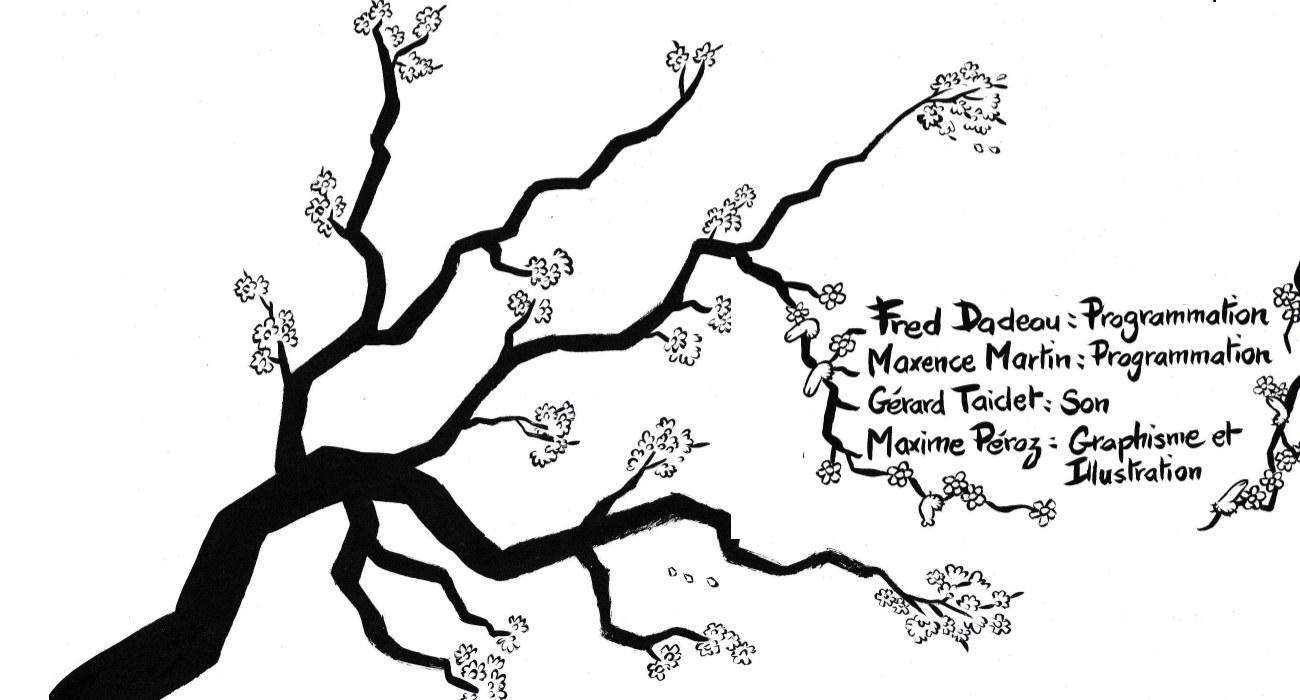 Fred Dadeau : Programmation
Maxence Martin : Programmation
Gérard Taidet : Son
Maxime Péroz : Graphisme et
Illustration